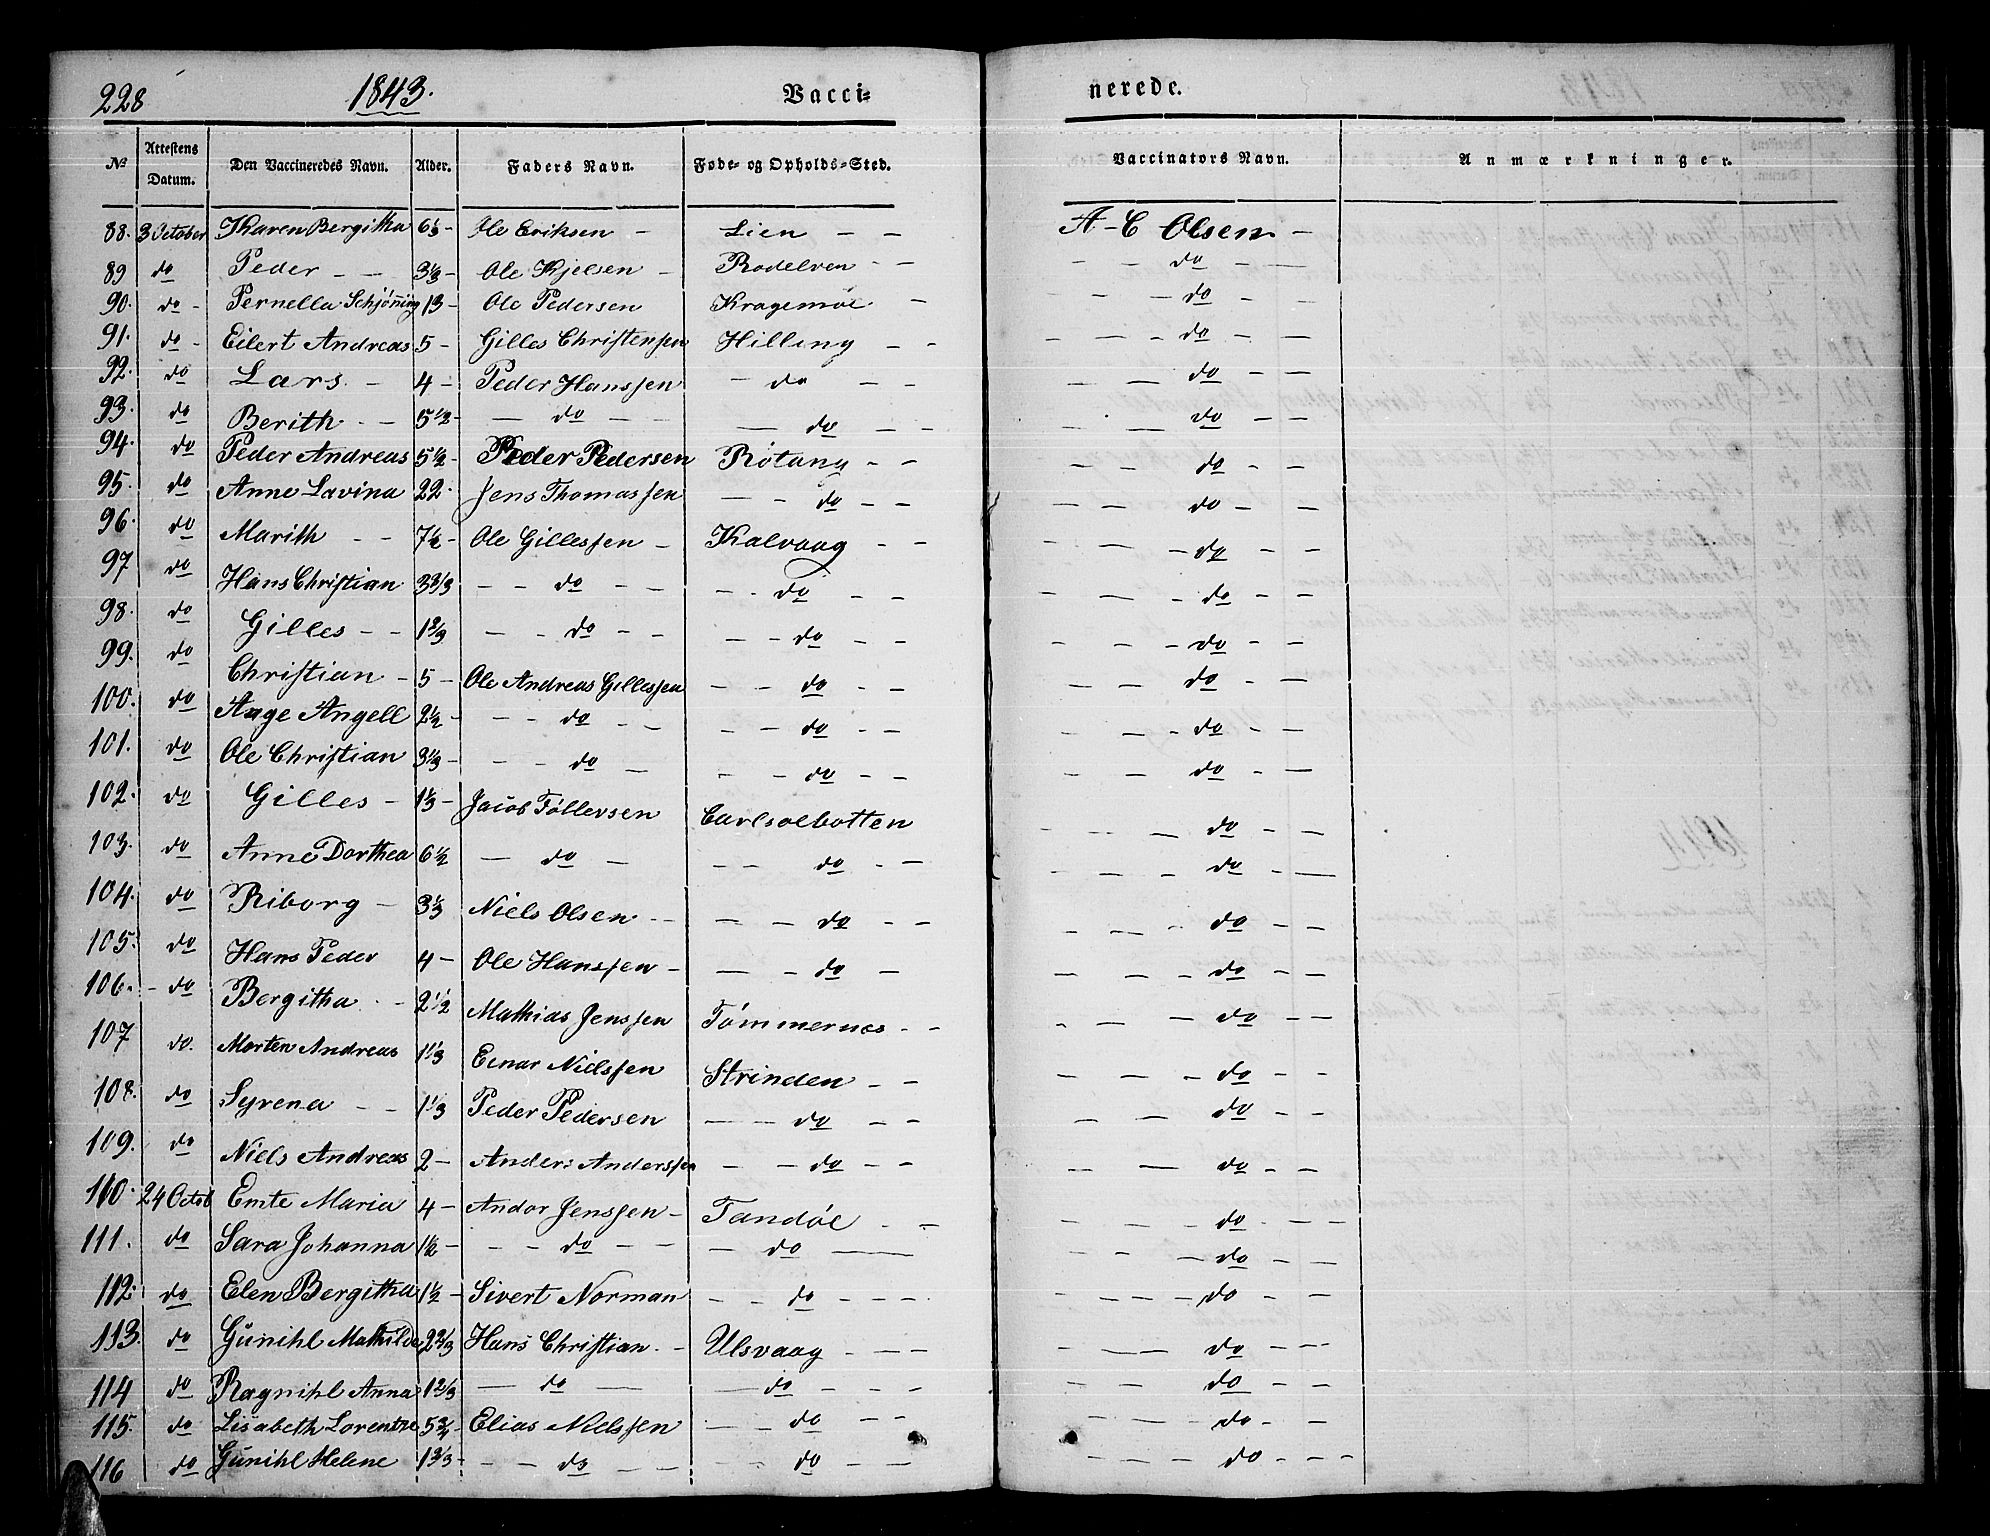 228 1843. Vacci- nerede.
No Attestens Datum. Den Vaccineredes Navn. Alder. Faders Navn. Føde- og Opholds-Sted. Vaccinators Navn. Anmærkninger.
88. 3 October Karen Bergitha 6 1/3 - Ole Eriksen - Lien - - A-C Olsen -
89 do Peder - - 3 1/3 - Ole Kjelsen - Rodelven - - - - - do - -
90. do - Pernella Schjöning 13 - Ole Pedersen Kragemøl - - - - do - -
91. do - Eilert Andreas 5 - Gilles Christensen Hilling - - - - - do - -
92. do Lars. - 4 - Peder Hanssen - do - - - - - do - -
93. do Berith - - 5 1/2 - - do - - - do - - - - do - -
94. do Peder Andreas 5 1/2 - Peder Pedersen Røtang - - - - do - -
95. do Anne Lavina 22 - Jens Thomassen - - do - - - - do - -
96. do Marith - - 7 1/2 - Ole Gillessen - Kalvaag - - - - - do - -
97 do Hans Christian 3 2/3 - - do - - - - do - - - - - do - -
98. do Gilles - - 1 2/3 - - do - - - - do - - - - - do - -
99. do Christian - 5 - Ole Andreas Gillessen - - do - - - - - do - -
100. do Aage Angell 2 1/2 - - - do - - - - do - - - - - do - -
101. do Ole Christian 3 1/3 - - - do - - - do - - - - - do - -
102. do Gilles - 1 1/3 - Jacob Tøllersen Carlsolbotten - - - do - -
103. do Anne Dorthea 6 1/2 - do - - - do - - - - - do - -
104. do Riborg - 3 1/3 Niels Olsen - - - - do - - - - - do - -
105. do Hans Peder 4 - Ole Hanssen - - - do - - - - do - -
106. - do Bergitha - - 2 1/2 Mathias Jenssen Tømmernæs - - - - - do - -
107 do. Morten Andreas 1 1/3 Einar Nielssen Strinden - - - - - do - -
108. do Syrena - - 1 1/3 Peder Pedersen - - do - - - - - do - -
109. do Niels Andreas 2 - Anders Anderssen - - do - - - - do - -
110. 24 Octob Emte Maria 4 - Andor Jenssen - Tandøl - - - - - do - - -
111. do Sara Johanna 1 1/2 - - - do - - - do - - - - do - -
112. do Elen Bergitha 1 1/2 - Sivert Norman - - do - - - - - - do - -
113. do Gunihl Mathilde 2 2/3 Hans Christian. - Ulsvaag - - - - - - do - - -
114 do Ragnihl Anna 1 2/3 - do - - do - - - - - - do - -
115. do Lisabeth Lorentze 5 3/4 - Elias Nielssen - - do - - - - - do - -
116 do Gunihl Helene 1 2/3 - - - do - - - - do - - - - - do - - -